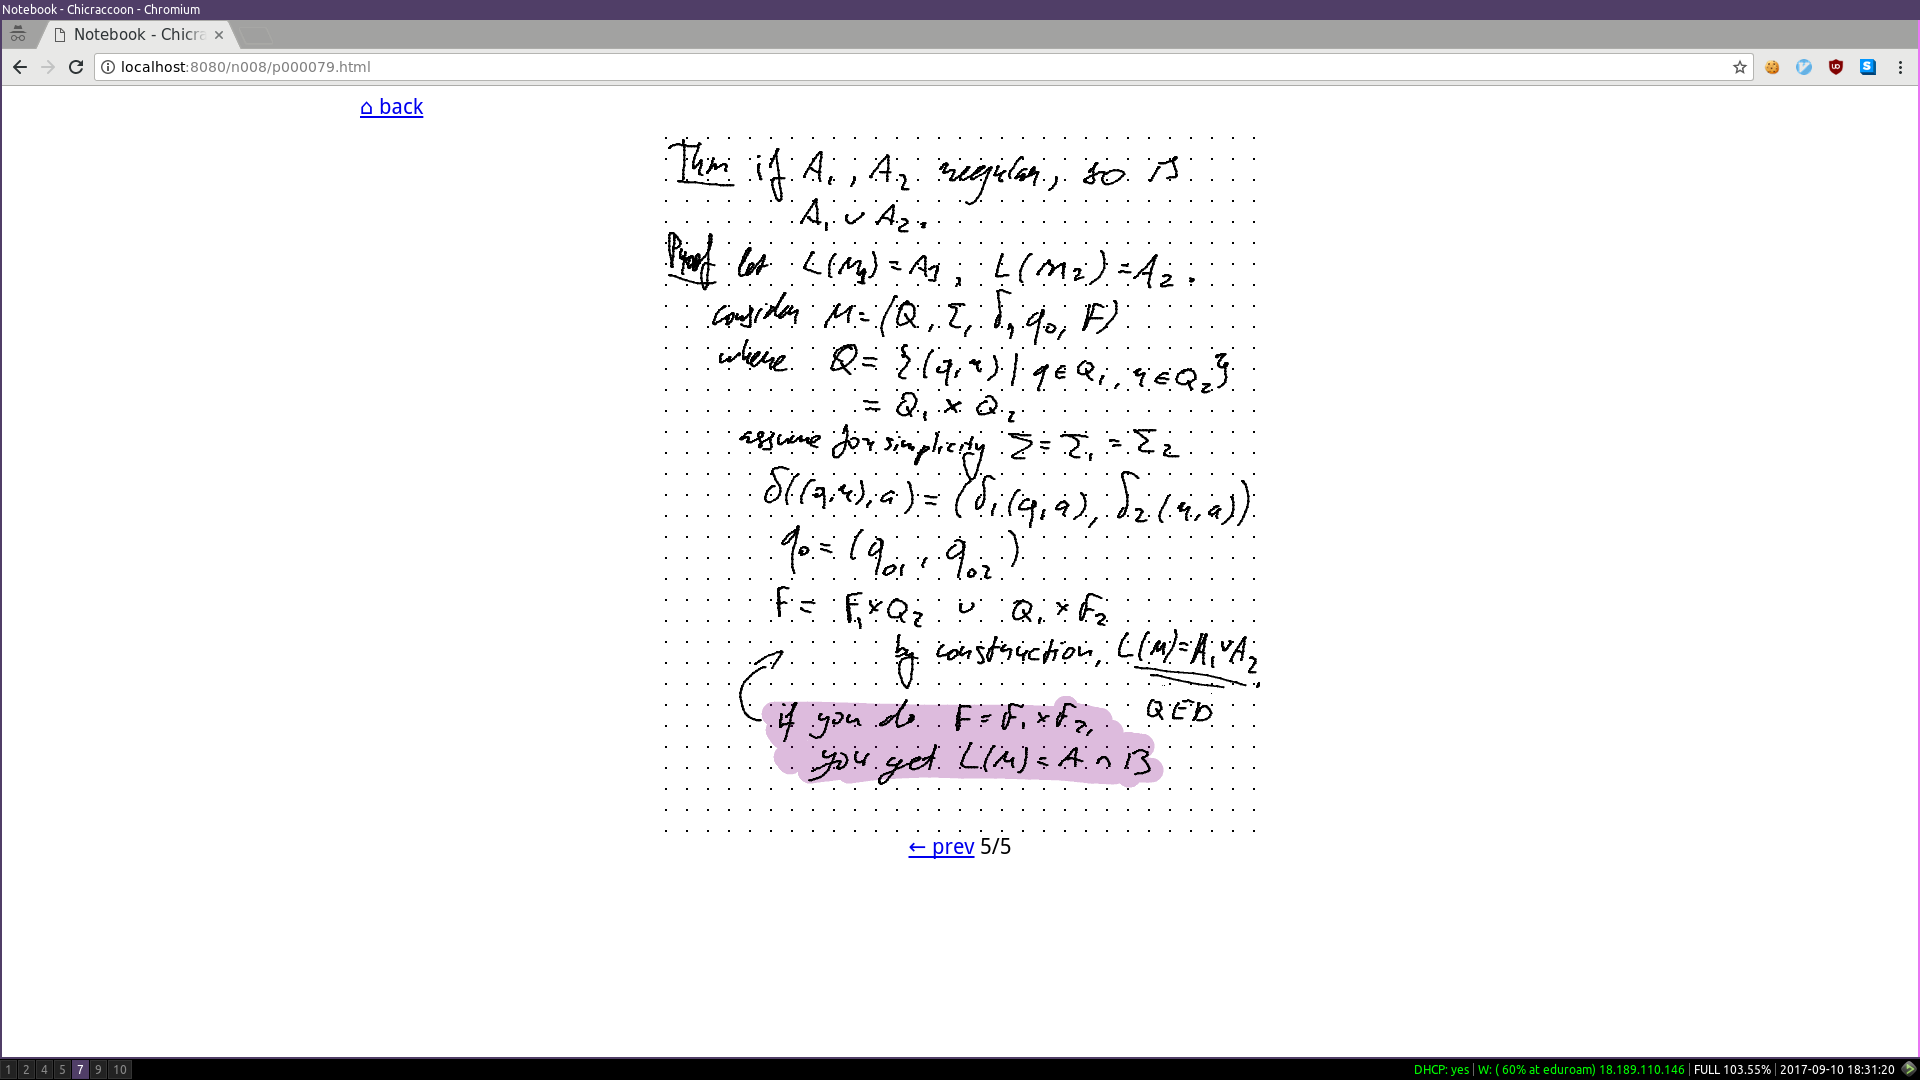 Notebook - Chicraccoon - Chromium
Notebook - Chicra
localhost:8080/n008/p000079.html
⌂ back
Thm if A₁, A₂ regular, so is
A₁ ∪ A₂.
Proof let L(M₁) = A₁, L(M₂) = A₂.
consider M = (Q, Σ, δ, q₀, F)
where Q = {(q, r) | q ∈ Q₁, r ∈ Q₂}
= Q₁ × Q₂
assume for simplicity Σ = Σ₁ = Σ₂
δ((q, r), a) = (δ₁(q, a), δ₂(r, a))
q₀ = (q₀₁, q₀₂)
F = F₁ × Q₂ ∪ Q₁ × F₂
by construction, L(M) = A₁ ∪ A₂.
QED
if you do F = F₁ × F₂,
you get L(M) = A ∩ B
← prev 5/5
1 2 4 5 7 9 10
DHCP: yes | W: ( 60% at eduroam) 18.189.110.146 | FULL 103.55% | 2017-09-10 18:31:20